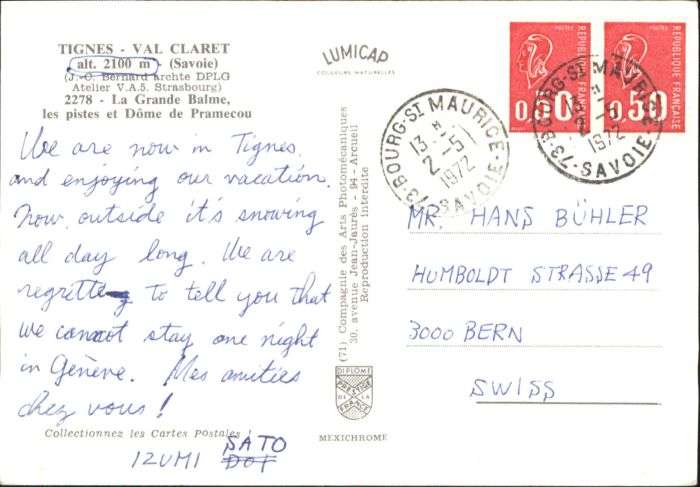 TIGNES - VAL CLARET
alt. 2100 m (Savoie)
(J.-C. Bernard archte DPLG
Atelier V.A.5. Strasbourg)
2278 - La Grande Balme,
les pistes et Dôme de Pramecou
We are now in Tignes,
and enjoying our vacation.
Now, outside it's snowing
all day long. We are
regretting to tell you that
we cannot stay one night
in Genève. Mes amitiés
chez vous!
Collectionnez les Cartes Postales !
IZUMI SATO
LUMICAP
COULEURS NATURELLES
(71) Compagnie des Arts Photomécaniques
30, avenue Jean-Jaurès - 94 - Arcueil
Reproduction interdite
DIPLOME
PRESTIGE
DE LA
FRANCE
MEXICHROME
POSTES
0,50
REPUBLIQUE FRANÇAISE
POSTES
0,50
REPUBLIQUE FRANÇAISE
73-BOURG-ST MAURICE
13 H
2-5
1972
SAVOIE
73-BOURG-ST MAURICE
1972
SAVOIE
MR. HANS BÜHLER
HUMBOLDT STRASSE 49
3000 BERN
SWISS